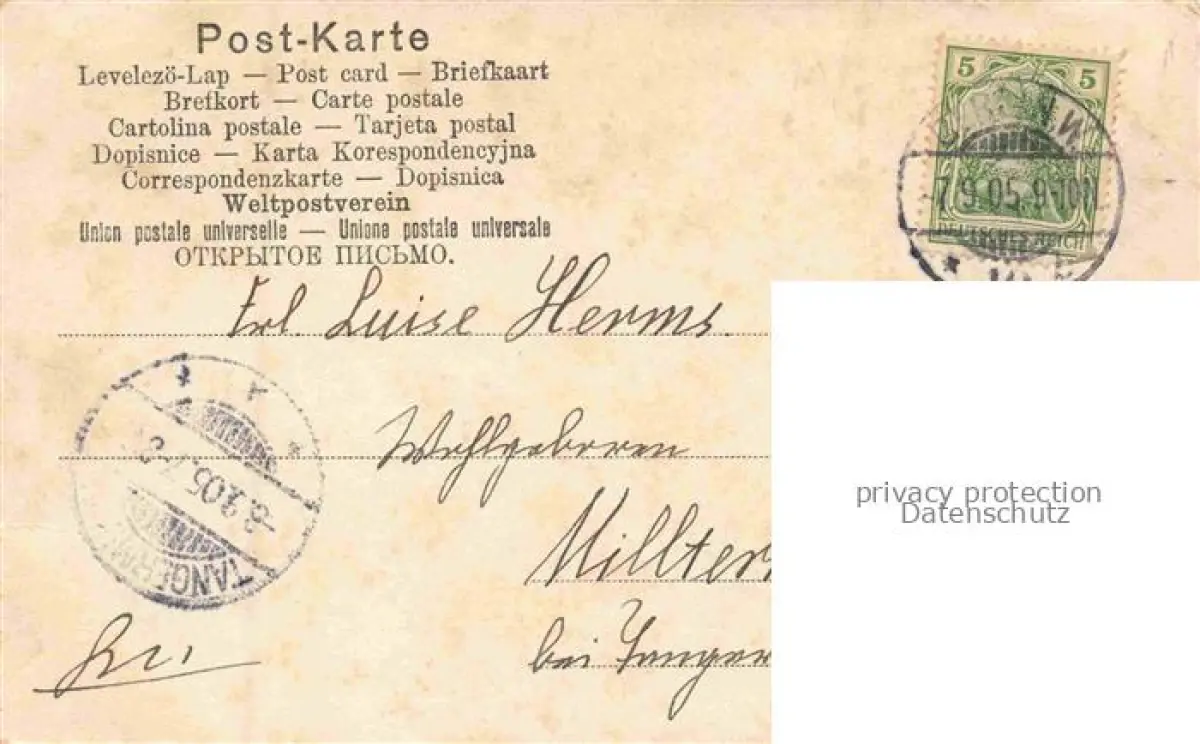 Post-Karte
Levelező-Lap — Post card — Briefkaart
Brefkort — Carte postale
Cartolina postale — Tarjeta postal
Dopisnice — Karta Korespondencyjna
Correspondenzkarte — Dopisnica
Weltpostverein
Union postale universelle — Unione postale universale
ОТКРЫТОЕ ПИСЬМО.
5 5
7.9.05. 9-10N
DEUTSCHES REICH
Frl. Luise Herms.
Wohlgeboren
8.9.05. 7-8
TANGERM
Millter
bei Tanger
privacy protection
Datenschutz